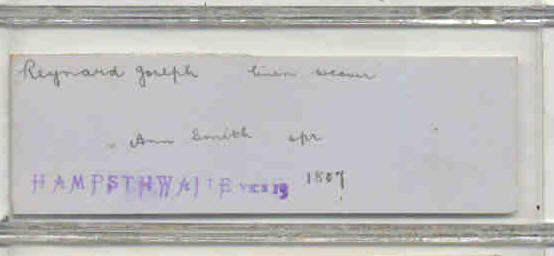 Reynard Joseph linen weaver
" Ann Smith spr
HAMPSTHWAITE 1807